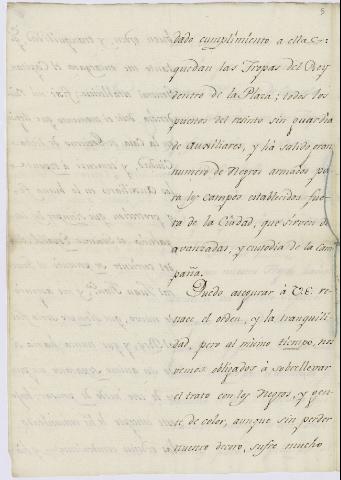 5
dado cumplimiento a ellas
quedan las Tropas del Rey
dentro de la Plaza; todos los
puestos del recinto sin guardia
de auxiliares, y há salido gran
numero de Negros armados pa-
ra los campos establecidos fue-
ra de la Ciudad, que sirven de
avanzadas, y custodia de la cam-
paña.
Puedo asegurar à V.E. re-
nace el orden, y la tranquili-
dad, pero al mismo tiempo, nos
vemos obligados à sobrellevar
el trato con los Negros, y gen-
te de color, aunque sin perder
nuestro decoro, sufre mucho